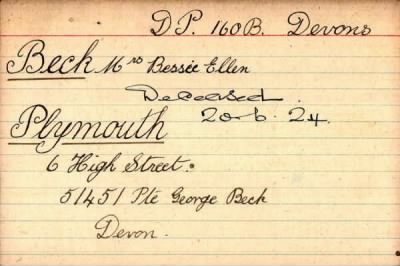 DP. 160B. Devons
Beck Mrs Bessie Ellen
Deceased.
Plymouth 20.6.24.
6 High Street.
51451 Pte George Beck
Devon.